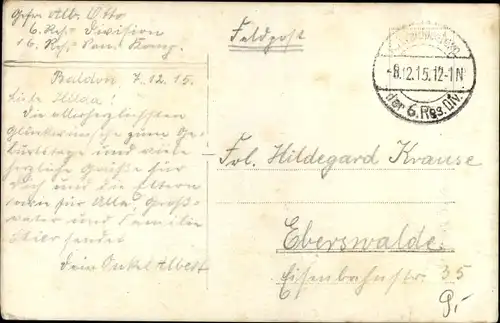 Gefr. Alb. Otto
6. Res. Division
16. Res. San. Komp.
Feldpost
-8.12.15.12-1N
der 6. Res. Div.
Baldon 7.12.15.
Liebe Hilda!
Die allerherzlichsten
Glückwünsche zum Ge-
burtstage und viele
herzliche Grüße für
Dich und die Eltern
sowie für Alle, Groß-
vater und Familie
Stier sendet
Dein Onkel Albert
Frl. Hildegard Krause
Eberswalde
Eisenbahnstr. 35
9,-